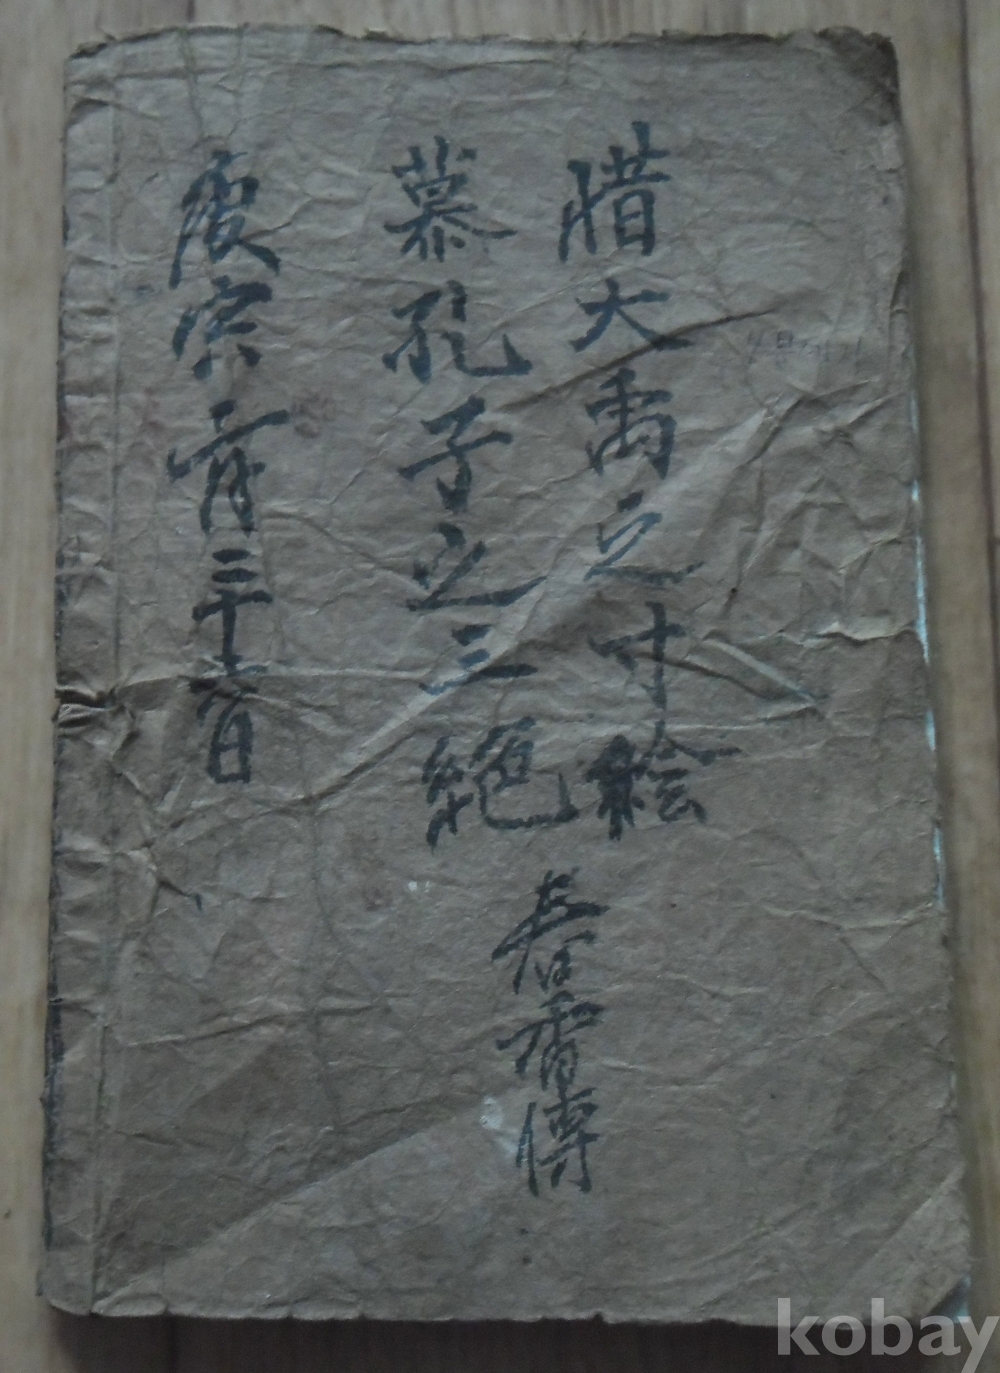 惜大禹之寸繪
慕孔子之三絶
春香傳
庚寅二月二十六日
kobay